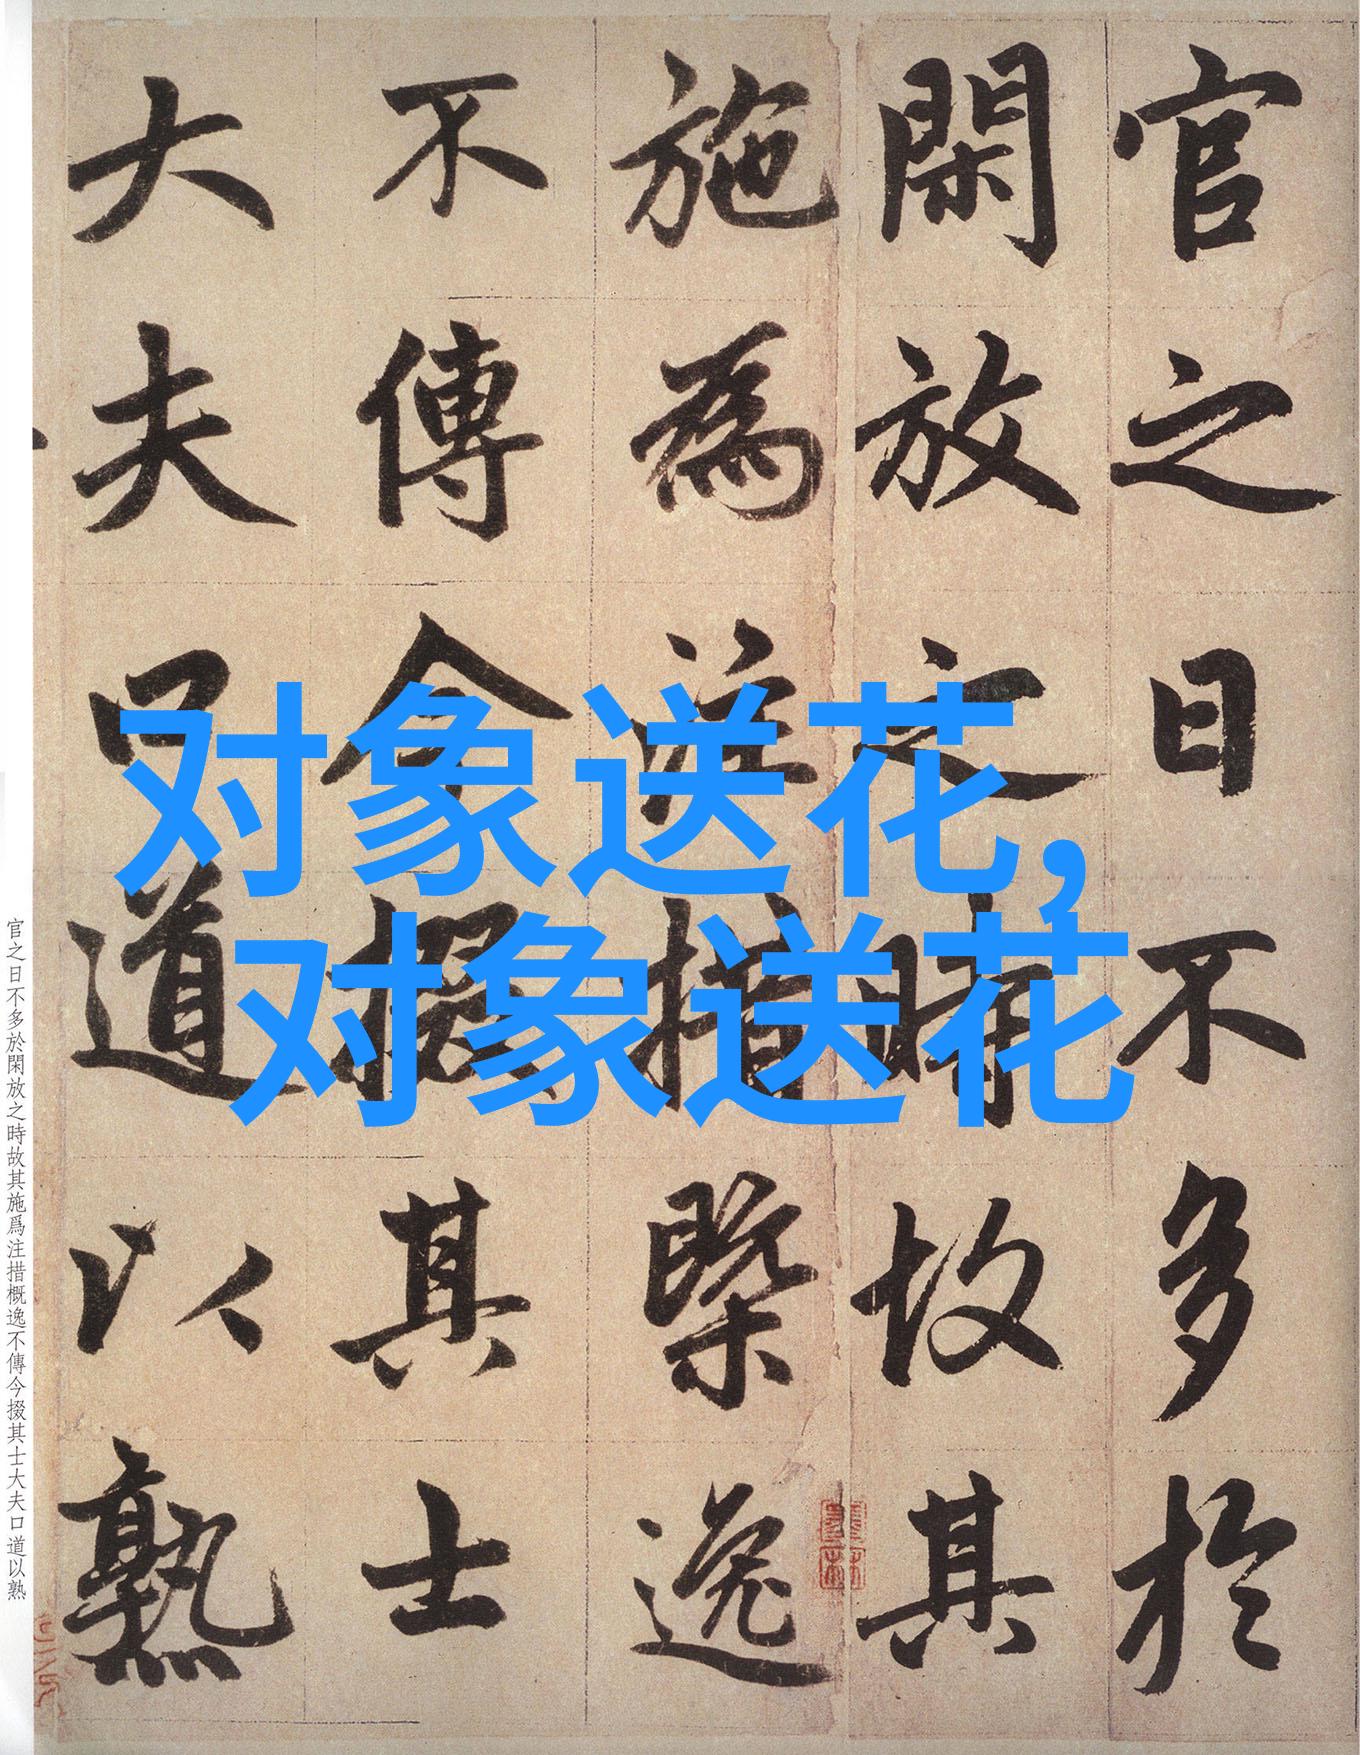 官之日不多於
閑放之時故其
施為注措槩逸
不傳今掇其士
大夫口道以熟
对象送花，
对象送花
官之日不多於閑放之時故其施爲注措概逸不傳今掇其士大夫口道以熟